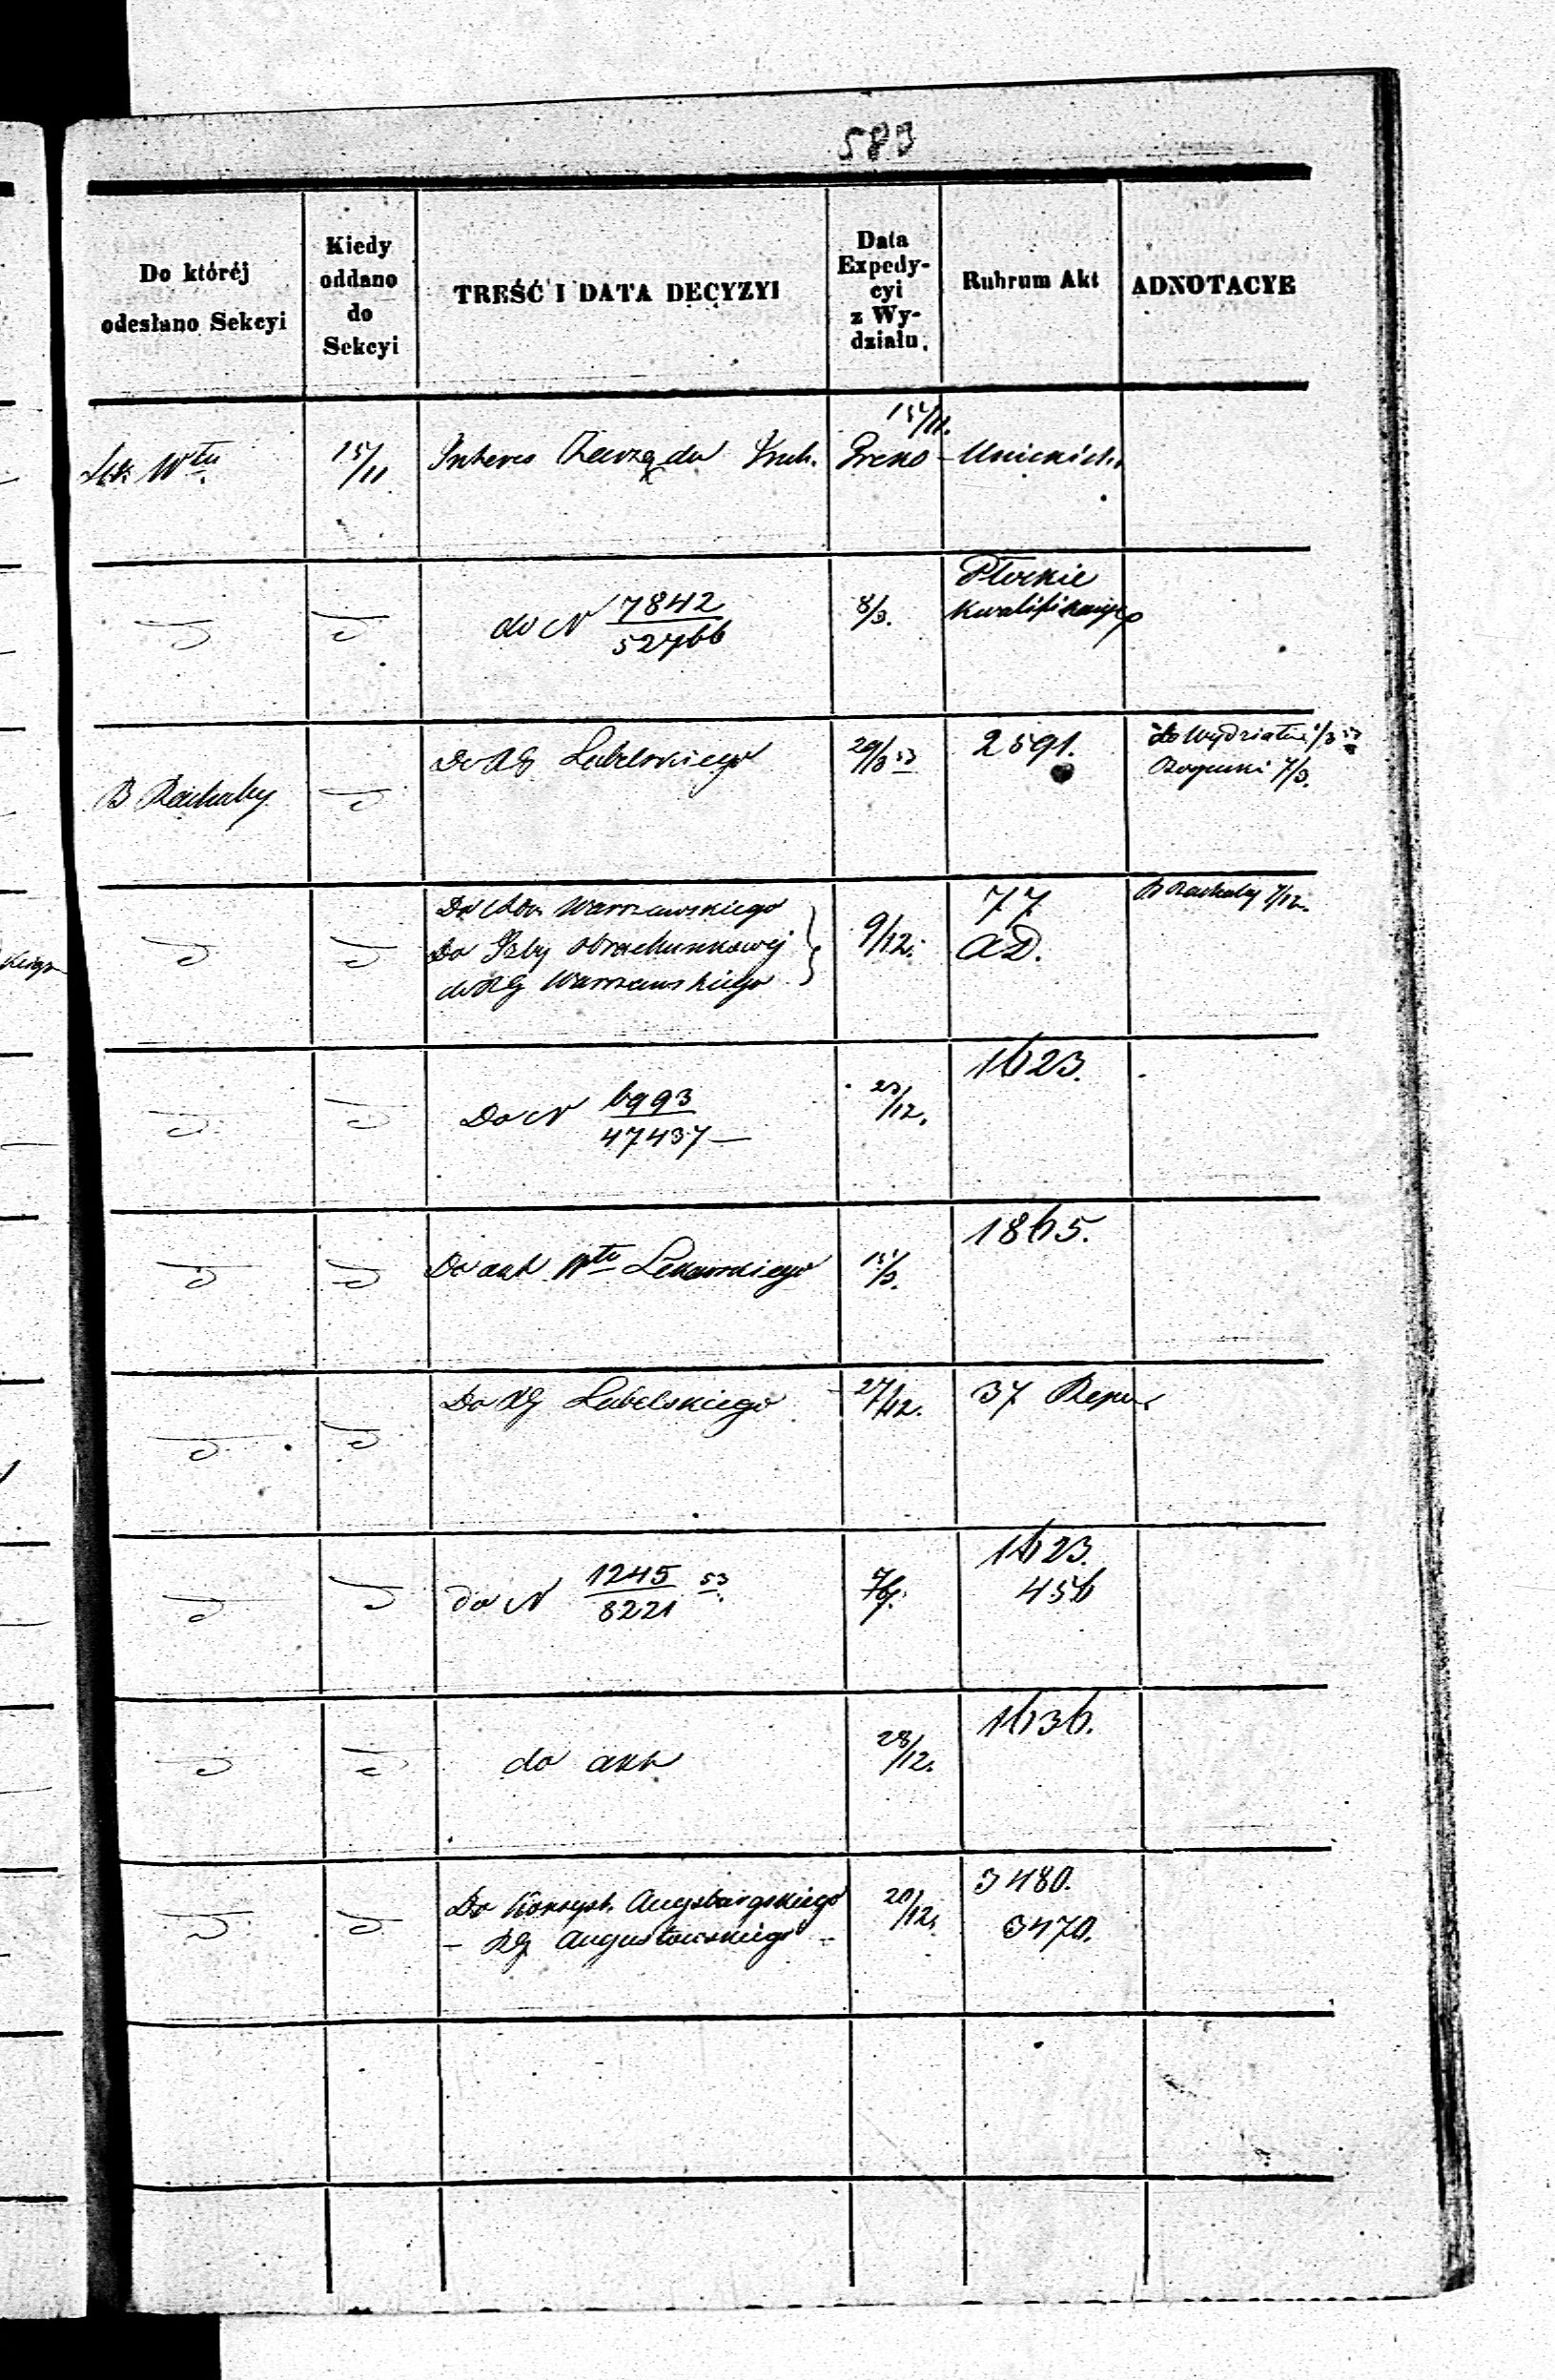 583
Do któréj
odesłano Sekcyi
Kiedy
oddano
do
Sekcyi
TREŚĆ I DATA DECYZYI
Data
Expedy-
cyi
z Wy-
działu.
Rubrum Akt
ADNOTACYE
Wtu
15/11
Interes Zarządu
15/11.
Unickich
do N 7842
52766
8/3.
Płockie
Do RG Lubelskiego
29/3 53
2591.
do Wydziału 1/3 53
7/3.
B Rachuby
Do Warszawskiego
Do Izby obrachunkowéj
do RG Warszawskiego
9/12.
77
aD.
B Rachuby 7/12.
Do N 6993
47437 —
23/12.
1623.
Do akt Wtu
15/3.
1865.
Do RG Lubelskiego
27/12.
37
do N 1245 53
8221
1623.
456
do akt
28/12.
1636.
Do Augsburgskiego
- RG Augustowskiego -
20/12.
3480.
3470.